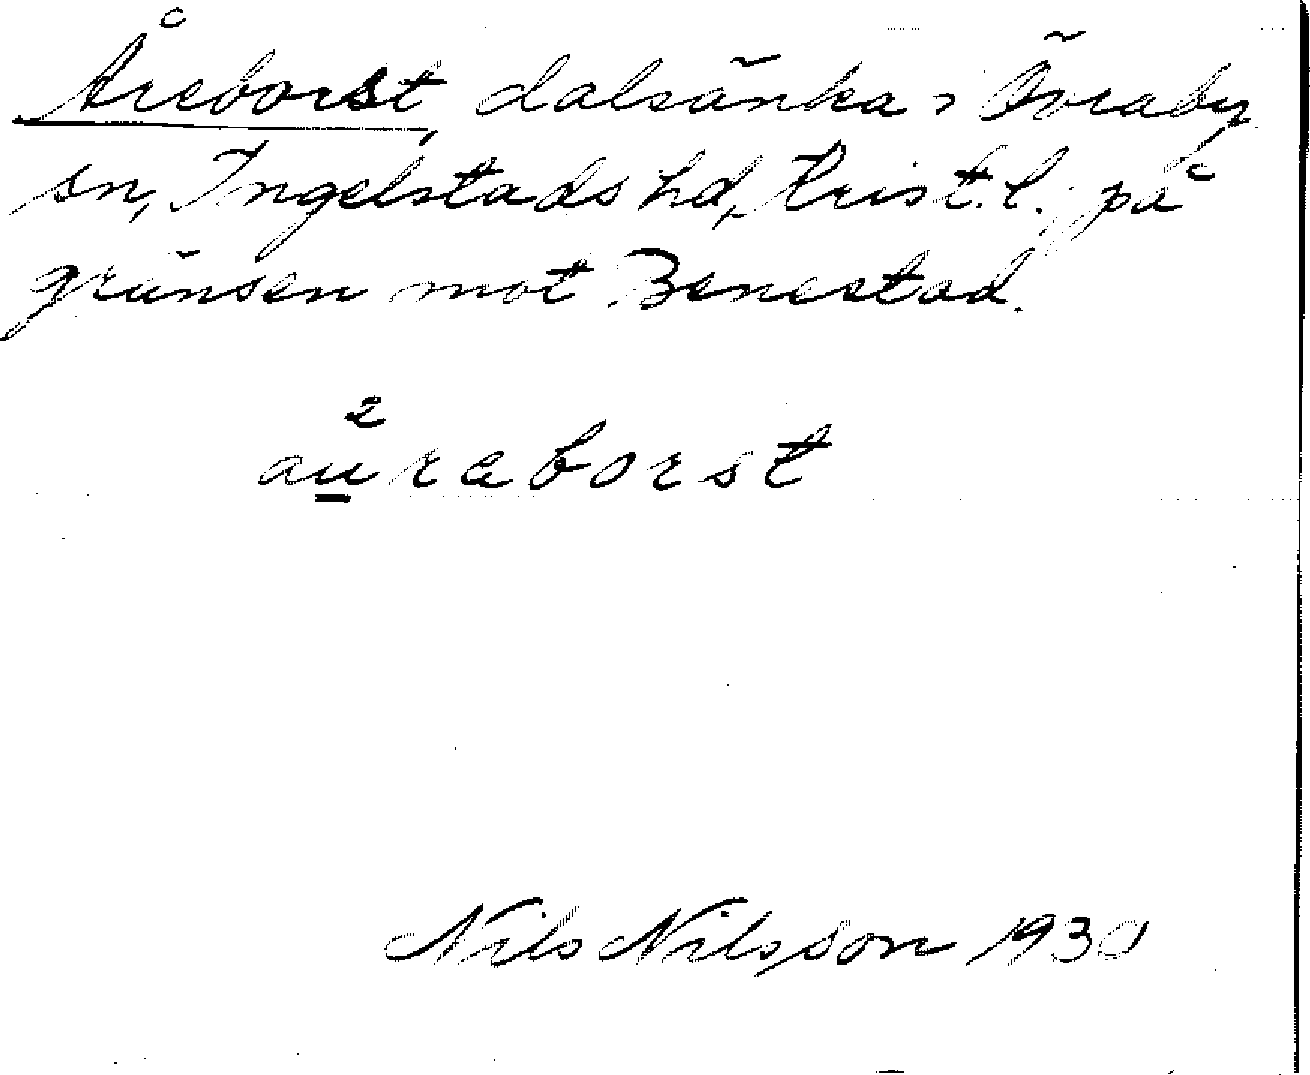 Åreborst, dalsänka i Övraby
sn, Ingelstads hd, Krist. l. på
gränsen mot Benestad.
2
au̲raborst
Nils Nilsson 1930